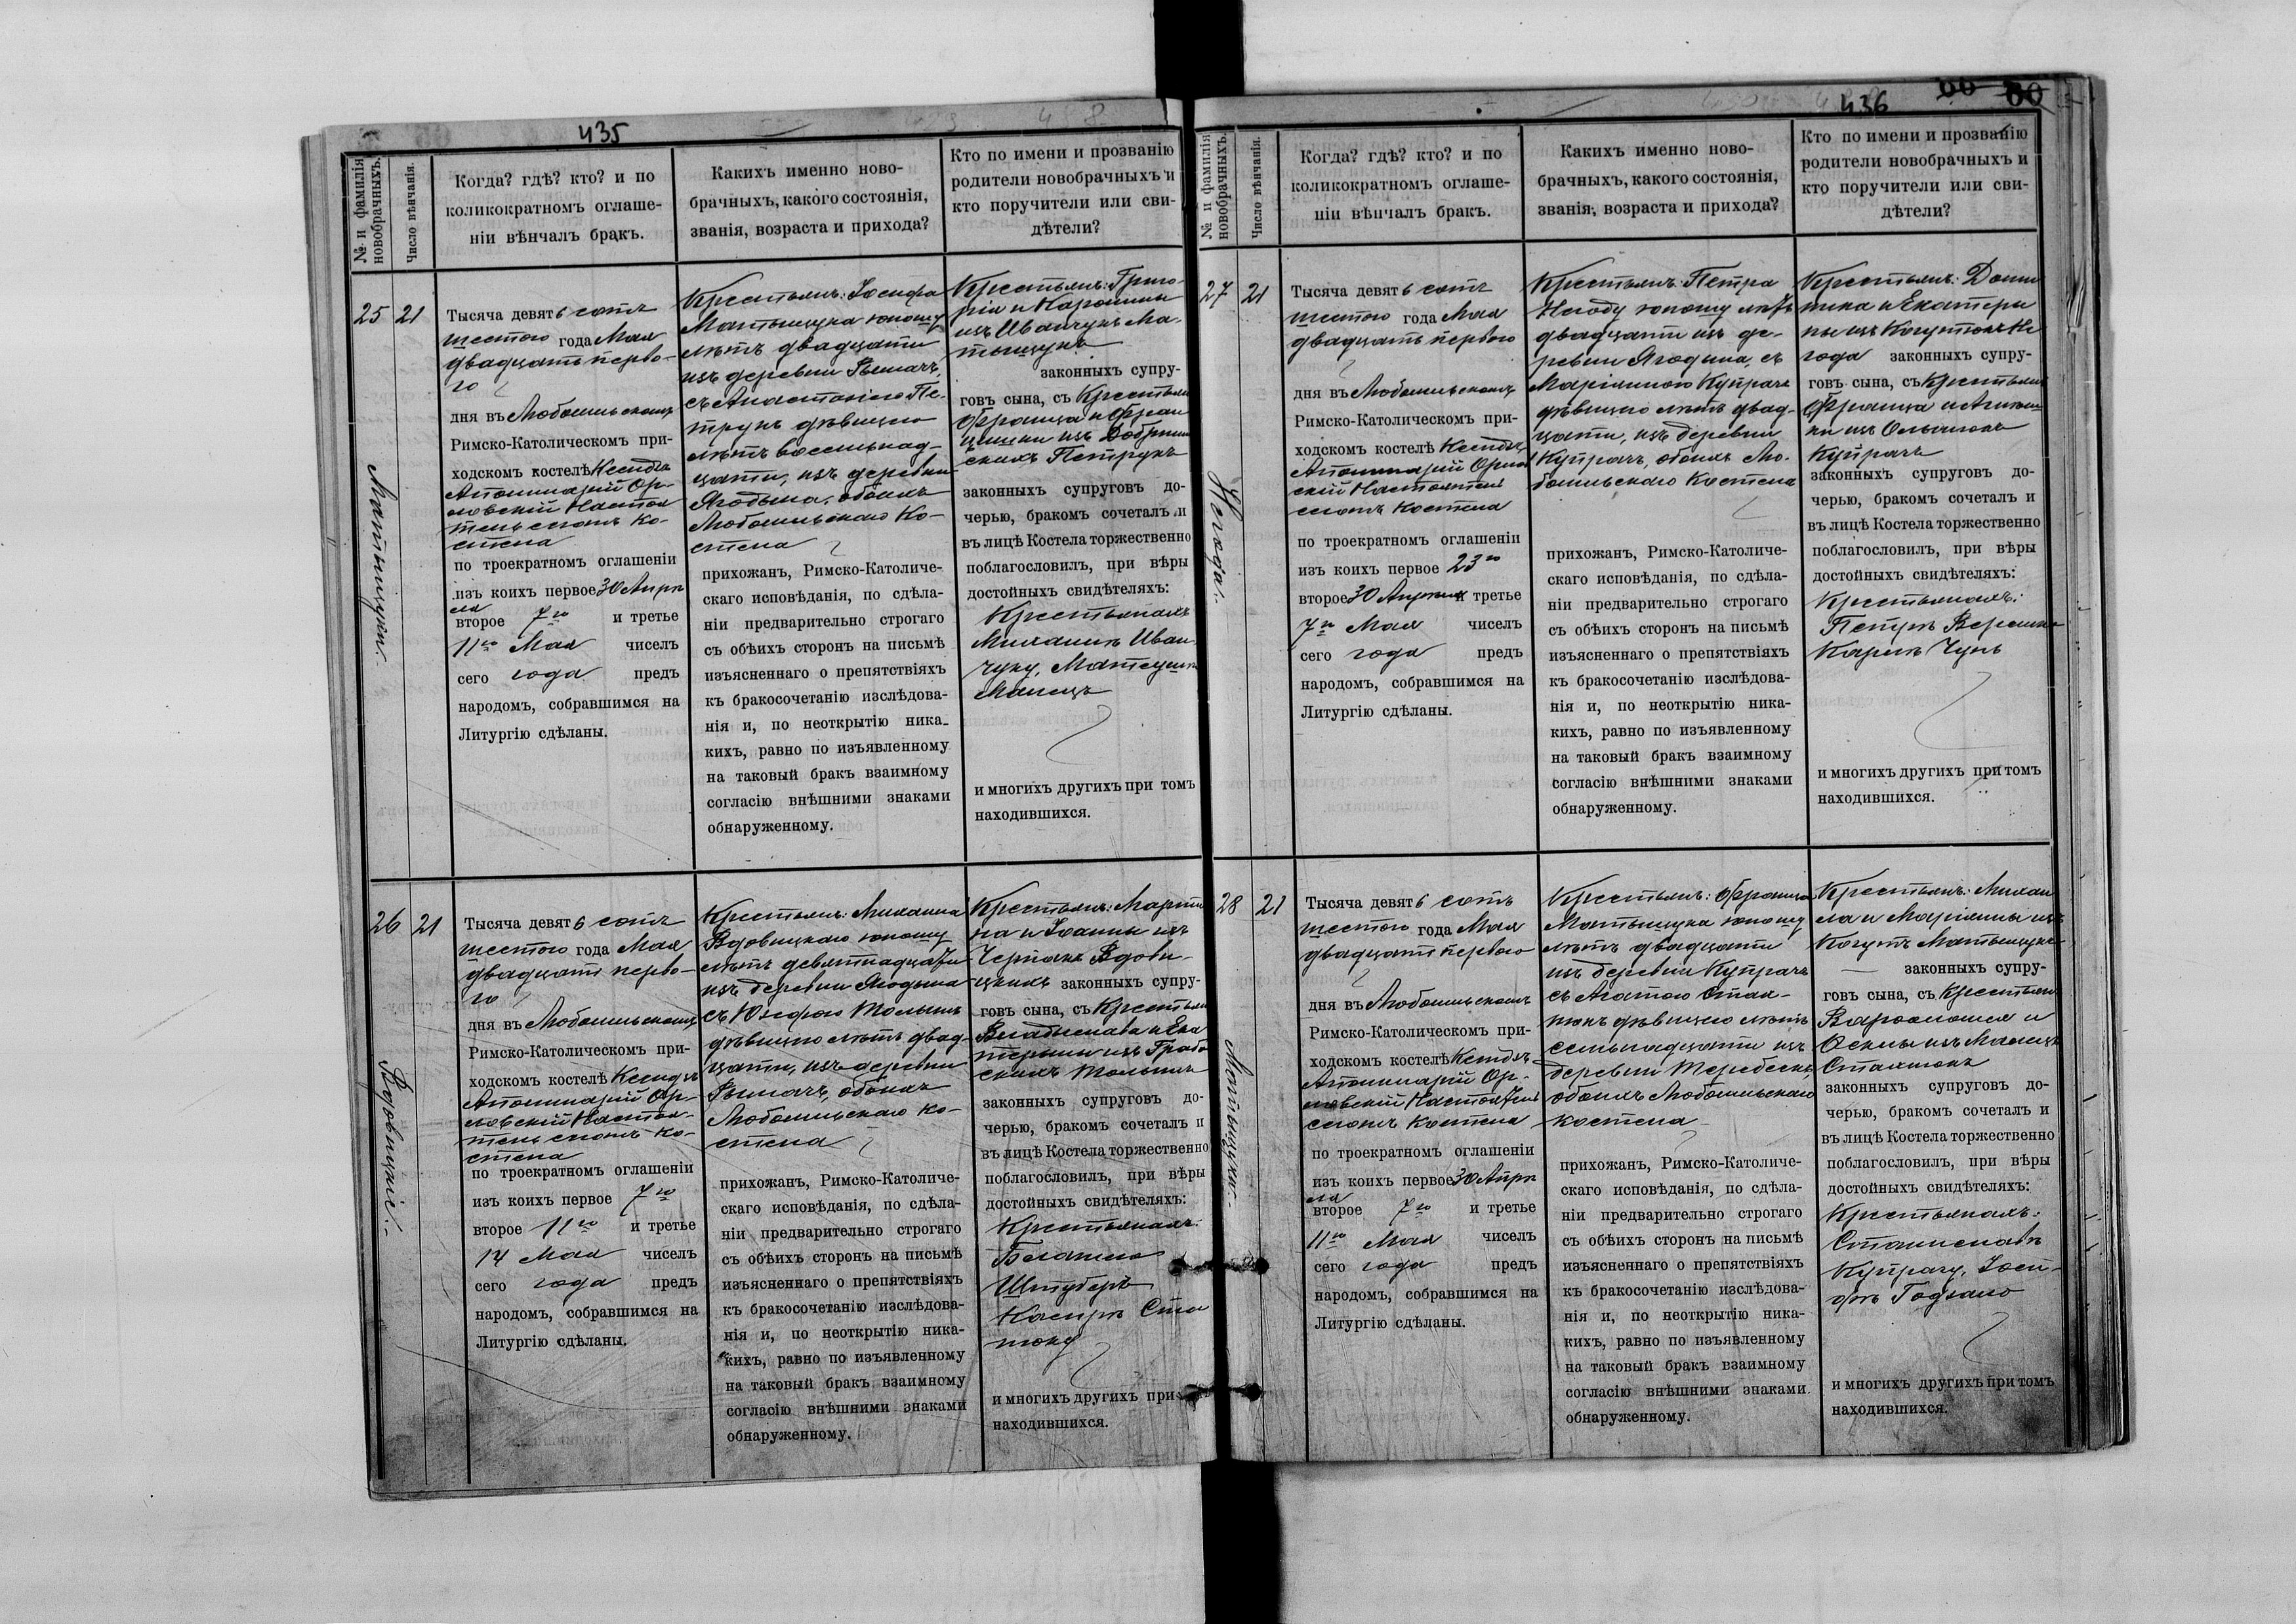 435
№ и фамилія
новобрачныхъ.
Число вѣнчанія.
Когда? гдѣ? кто? и по
коликократномъ оглаше-
ніи вѣнчалъ бракъ.
Какихъ именно ново-
брачныхъ, какого состоянія,
званія, возраста и прихода?
Кто по имени и прозванію
родители новобрачныхъ и
кто поручители или сви-
дѣтели?
25
Матыщуки.
21
Тысяча девят6 сотъ
шестого года Мая
двадцать перво-
го
дня въ Любомльскомъ
Римско-Католическомъ при-
ходскомъ костелѣ Ксендзъ
Аполинарій Ор-
ловскій Настоя
тель сіого ко-
стела
по троекратномъ оглашеніи
изъ коихъ первое 30 Апрѣ
ля
второе 7го и третье
11го Мая чиселъ
сего года предъ
народомъ, собравшимся на
Литургію сдѣланы.
Крестьянъ: Іосифа
Матыщука юношу
лѣтъ двадцати
изъ деревни Рымачъ,
съ Анастасіею Пе-
трукъ дѣвицею
лѣтъ восемьнад-
цати, изъ деревни
Ягодына, обоихъ
Любомльскаго Ко-
стела
прихожанъ, Римско-Католиче-
скаго исповѣданія, по сдѣла-
ніи предварительно строгаго
съ обѣихъ сторонъ на письмѣ
изъясненнаго о препятствіяхъ
къ бракосочетанію изслѣдова-
нія и, по неоткрытію ника-
кихъ, равно по изъявленному
на таковый бракъ взаимному
согласію внѣшними знаками
обнаруженному.
Крестьянъ: Григо-
рія и Каролины
изъ Иванчукъ Ма-
тыщукъ
законныхъ супру-
говъ сына, съ Крестьян
Франца и Фран
цишки изъ Добрын
скихъ Петрукъ
законныхъ супруговъ до-
черью, бракомъ сочеталъ и
въ лицѣ Костела торжественно
поблагословилъ, при вѣры
достойныхъ свидѣтеляхъ:
Крестьянахъ
Михаилъ Иван-
чуку,
и многихъ другихъ при томъ
находившихся.
26
Вдовицкіе.
21
Тысяча девят6 сотъ
шестого года Мая
двадцать перво-
го
дня въ Любомльскомъ
Римско-Католическомъ при-
ходскомъ костелѣ Ксендзъ
Аполинарій Ор-
ловскій Настоя-
тель сіого ко-
стела
по троекратномъ оглашеніи
изъ коихъ первое 7го
второе 11го и третье
14 Мая чиселъ
сего года предъ
народомъ, собравшимся на
Литургію сдѣланы.
Крестьянъ: Михаила
Вдовицкаго юношу
лѣтъ девятнадцати
изъ деревни Ягодына
съ Юзефою Мольшъ
дѣвицею лѣтъ двад-
цати, изъ деревни
Рымачъ, обоихъ
Любомльскаго ко-
стела
прихожанъ, Римско-Католиче-
скаго исповѣданія, по сдѣла-
ніи предварительно строгаго
съ обѣихъ сторонъ на письмѣ
изъясненнаго о препятствіяхъ
къ бракосочетанію изслѣдова-
нія и, по неоткрытію ника-
кихъ, равно по изъявленному
на таковый бракъ взаимному
согласію внѣшними знаками
обнаруженному.
Крестьянъ: Марти
на и Іоанны изъ
Вдови-
цкихъ законныхъ супру-
говъ сына, съ Крестьян
Владыслава и Ека
терыны изъ Грабо
скихъ
законныхъ супруговъ до-
черью, бракомъ сочеталъ и
въ лицѣ Костела торжественно
поблагословилъ, при вѣры
достойныхъ свидѣтеляхъ:
Крестьянахъ:
Штуберъ
Каспръ Ста
тюку
и многихъ другихъ при
находившихся.
436
60
№ и фамилія
новобрачныхъ.
Число вѣнчанія.
Когда? гдѣ? кто? и по
коликократномъ оглаше-
ніи вѣнчалъ бракъ.
Какихъ именно ново-
брачныхъ, какого состоянія,
званія, возраста и прихода?
Кто по имени и прозванію
родители новобрачныхъ и
кто поручители или сви-
дѣтели?
27
Негода.
21
Тысяча девят6 сотъ
шестого года Мая
двадцать первого
дня въ Любомльскомъ
Римско-Католическомъ при-
ходскомъ костелѣ Ксендзъ
Аполинарій Орлов
скій Настоятель
сіого костела
по троекратномъ оглашеніи
изъ коихъ первое 23го
второе 30 Апрѣля и третье
7го Мая чиселъ
сего года предъ
народомъ, собравшимся на
Литургію сдѣланы.
Крестьянъ Петра
Негоду юношу лѣтъ
двадцати изъ де-
ревни Ягодына, съ
Маріянною Купрачъ
дѣвицею лѣтъ двад-
цати, изъ деревни
Купрачъ, обоихъ Лю-
бомльскаго Костела
прихожанъ, Римско-Католиче-
скаго исповѣданія, по сдѣла-
ніи предварительно строгаго
съ обѣихъ сторонъ на письмѣ
изъясненнаго о препятствіяхъ
къ бракосочетанію изслѣдова-
нія и, по неоткрытію ника-
кихъ, равно по изъявленному
на таковый бракъ взаимному
согласію внѣшними знаками
обнаруженному.
Крестьянъ: Доми
ника и Екатери
ны изъ Не
года законныхъ супру-
говъ сына, съ Крестьян
Франца и
ки изъ
Купрачъ
законныхъ супруговъ до-
черью, бракомъ сочеталъ и
въ лицѣ Костела торжественно
поблагословилъ, при вѣры
достойныхъ свидѣтеляхъ:
Крестьянахъ:
Петръ
Кароль
и многихъ другихъ при томъ
находившихся.
28
Матыщуки.
21
Тысяча девят6 сотъ
шестого года Мая
двадцать первого
дня въ Любомльскомъ
Римско-Католическомъ при-
ходскомъ костелѣ Ксендзъ
Аполинарій Ор-
ловскій Настоятель
сіого Костела
по троекратномъ оглашеніи
изъ коихъ первое 30 Апрѣ
ля
второе 7го и третье
11го Мая чиселъ
сего года предъ
народомъ, собравшимся на
Литургію сдѣланы.
Крестьянъ: Франца
Матыщука юношу
лѣтъ двадцати
изъ деревни Купрачъ
съ Агатою Стах-
нюкъ дѣвицею лѣтъ
семьнадцати изъ
деревни
обоихъ Любомльскаго
костела
прихожанъ, Римско-Католиче-
скаго исповѣданія, по сдѣла-
ніи предварительно строгаго
съ обѣихъ сторонъ на письмѣ
изъясненнаго о препятствіяхъ
къ бракосочетанію изслѣдова-
нія и, по неоткрытію ника-
кихъ, равно по изъявленному
на таковый бракъ взаимному
согласію внѣшними знаками
обнаруженному.
Крестьянъ: Михаи
ла и Маріянны изъ
Когутъ Матыщукъ
законныхъ супру-
говъ сына, съ Крестьян
и
изъ
законныхъ супруговъ до-
черью, бракомъ сочеталъ и
въ лицѣ Костела торжественно
поблагословилъ, при вѣры
достойныхъ свидѣтеляхъ:
Крестьянахъ:
Станиславъ
Купрачу, Іоси-
фъ
и многихъ другихъ при томъ
находившихся.